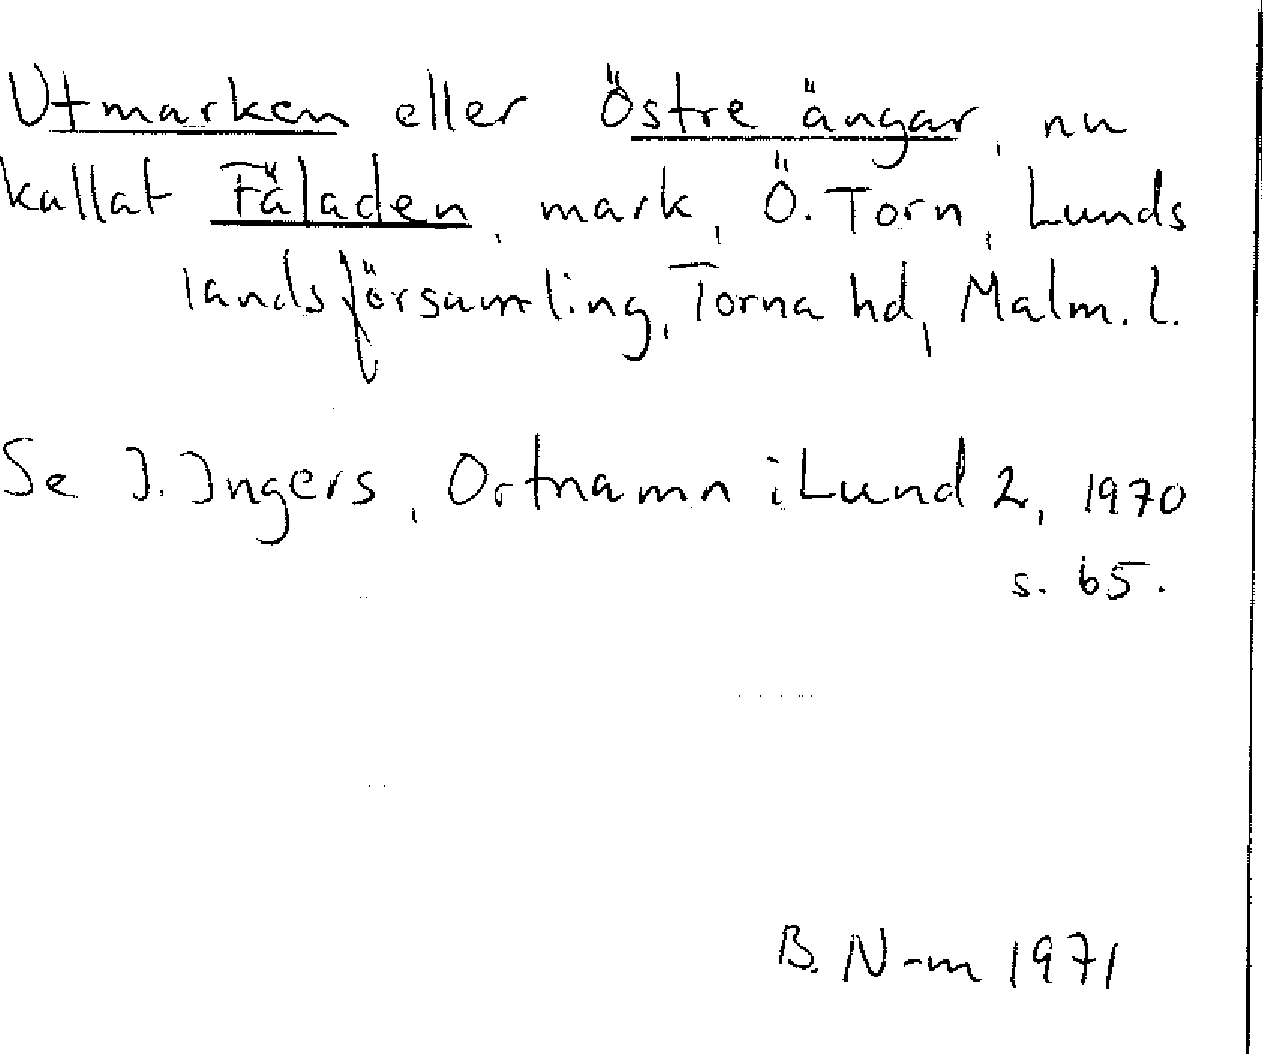 Utmarken eller Östre ängar, nu
kallat Fäladen, mark, Ö. Torn, Lunds
landsförsamling, Torna hd, Malm. l.
Se I. Ingers, Ortnamn i Lund 2, 1970
s. 65.
B. N-m 1971